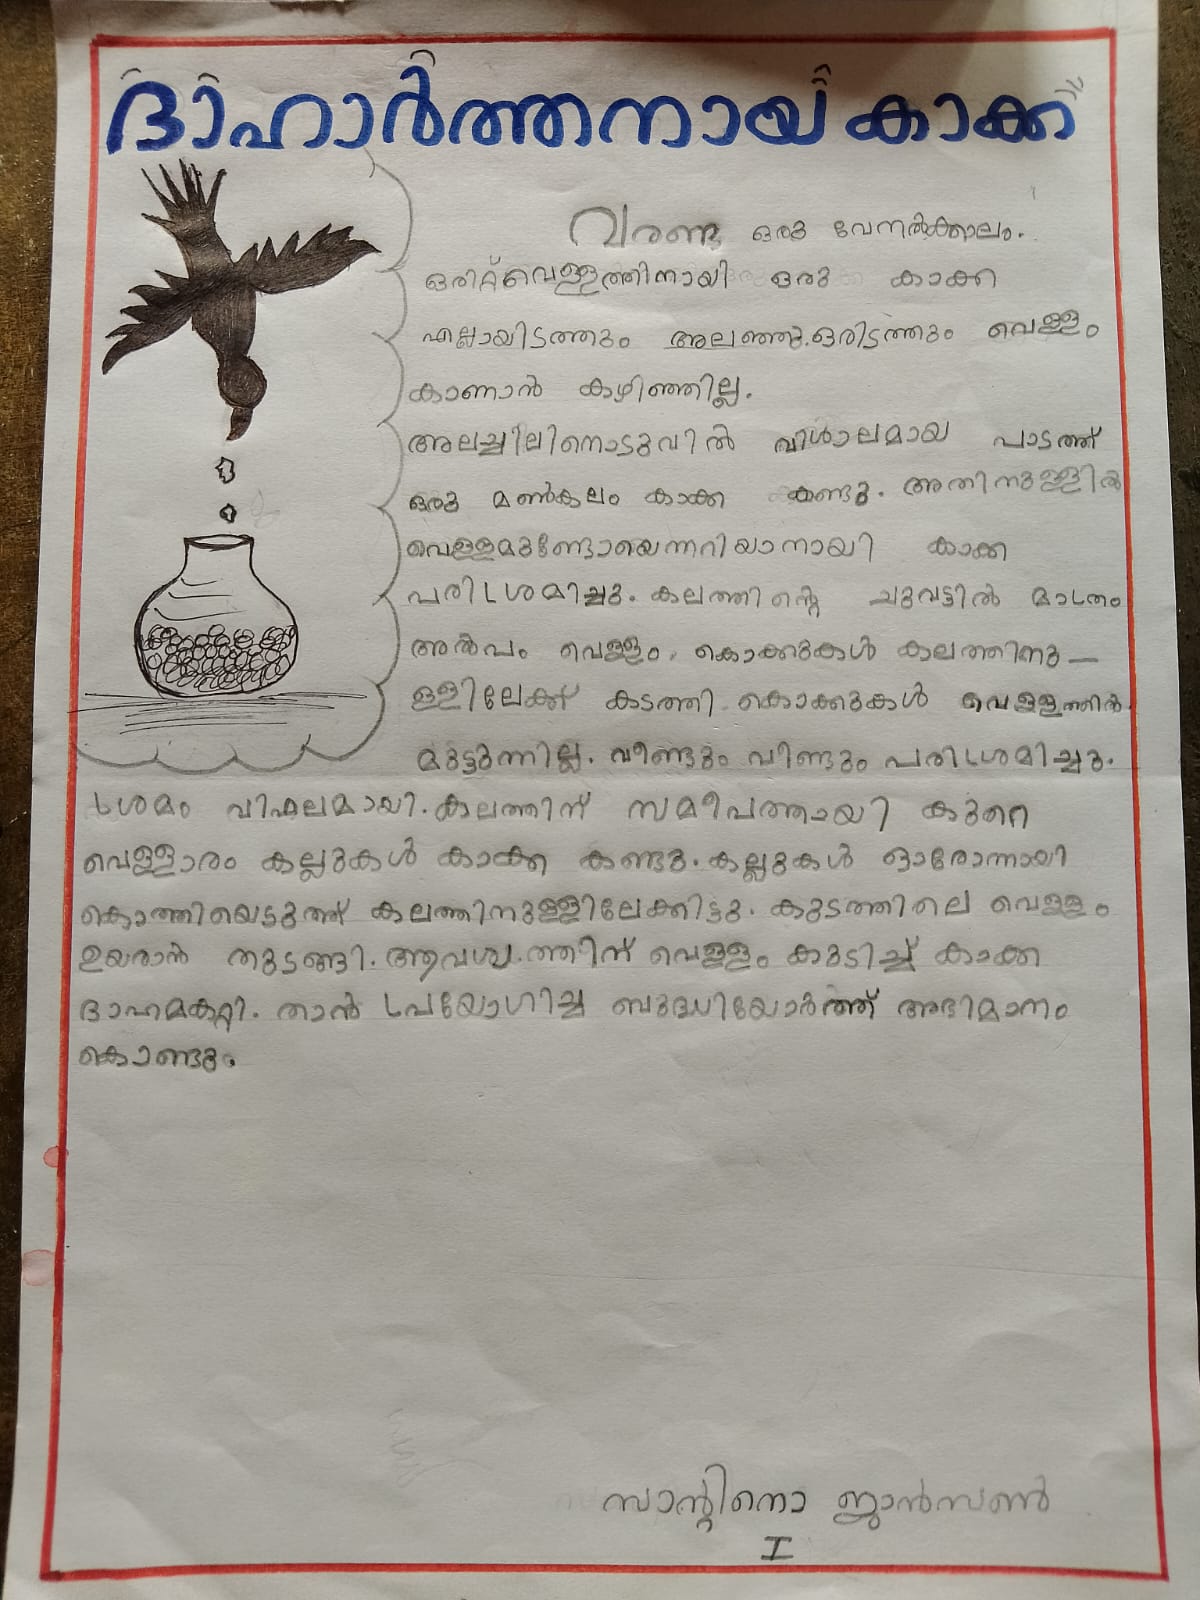 ദാഹാർത്തനായ കാക്ക
വരണ്ട ഒരു വേനൽക്കാലം.
ഒരിറ്റ് വെള്ളത്തിനായി ഒരു കാക്ക
എല്ലായിടത്തും അലഞ്ഞു. ഒരിടത്തും വെള്ളം
കാണാൻ കഴിഞ്ഞില്ല.
അലച്ചിലിനൊടുവിൽ വിശാലമായ പാടത്ത്
ഒരു മൺകലം കാക്ക കണ്ടു. അതിനുള്ളിൽ
വെള്ളമുണ്ടോയെന്നറിയാനായി കാക്ക
പരിശ്രമിച്ചു. കലത്തിന്റെ ചുവട്ടിൽ മാത്രം
അൽപം വെള്ളം. കൊക്കുകൾ കലത്തിനു-
ള്ളിലേക്ക് കടത്തി. കൊക്കുകൾ വെള്ളത്തിൽ
മുട്ടുന്നില്ല. വീണ്ടും വീണ്ടും പരിശ്രമിച്ചു.
ശ്രമം വിഫലമായി. കലത്തിന് സമീപത്തായി കുറെ
വെള്ളാരം കല്ലുകൾ കാക്ക കണ്ടു. കല്ലുകൾ ഓരോന്നായി
കൊത്തിയെടുത്ത് കലത്തിനുള്ളിലേക്കിട്ടു. കുടത്തിലെ വെള്ളം
ഉയരാൻ തുടങ്ങി. ആവശ്യത്തിന് വെള്ളം കുടിച്ച് കാക്ക
ദാഹമകറ്റി. താൻ പ്രയോഗിച്ച ബുദ്ധിയോർത്ത് അഭിമാനം
കൊണ്ടും.
സാന്റിനൊ ജാൻസൺ
I